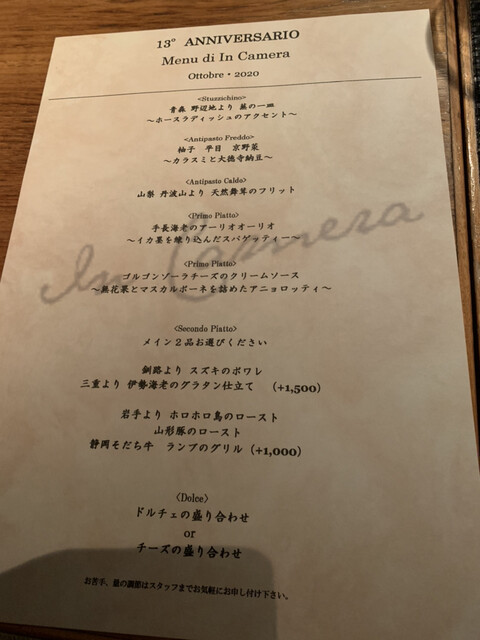 13° ANNIVERSARIO
Menu di In Camera
Ottobre・2020
<Stuzzichino>
青森 野辺地より 蕪の一皿
～ホースラディッシュのアクセント～
<Antipasto Freddo>
柚子 平目 京野菜
～カラスミと大徳寺納豆～
<Antipasto Caldo>
山梨 丹波山より 天然舞茸のフリット
<Primo Piatto>
手長海老のアーリオオーリオ
～イカ墨を練り込んだスパゲッティー～
<Primo Piatto>
ゴルゴンゾーラチーズのクリームソース
～無花果とマスカルポーネを詰めたアニョロッティ～
In Camera
<Secondo Piatto>
メイン２品お選びください
釧路より スズキのポワレ
三重より 伊勢海老のグラタン仕立て （+1,500）
岩手より ホロホロ鳥のロースト
山形豚のロースト
静岡そだち牛 ランプのグリル（+1,000）
〈Dolce〉
ドルチェの盛り合わせ
or
チーズの盛り合わせ
お苦手、量の調節はスタッフまでお気軽にお申し付け下さい。